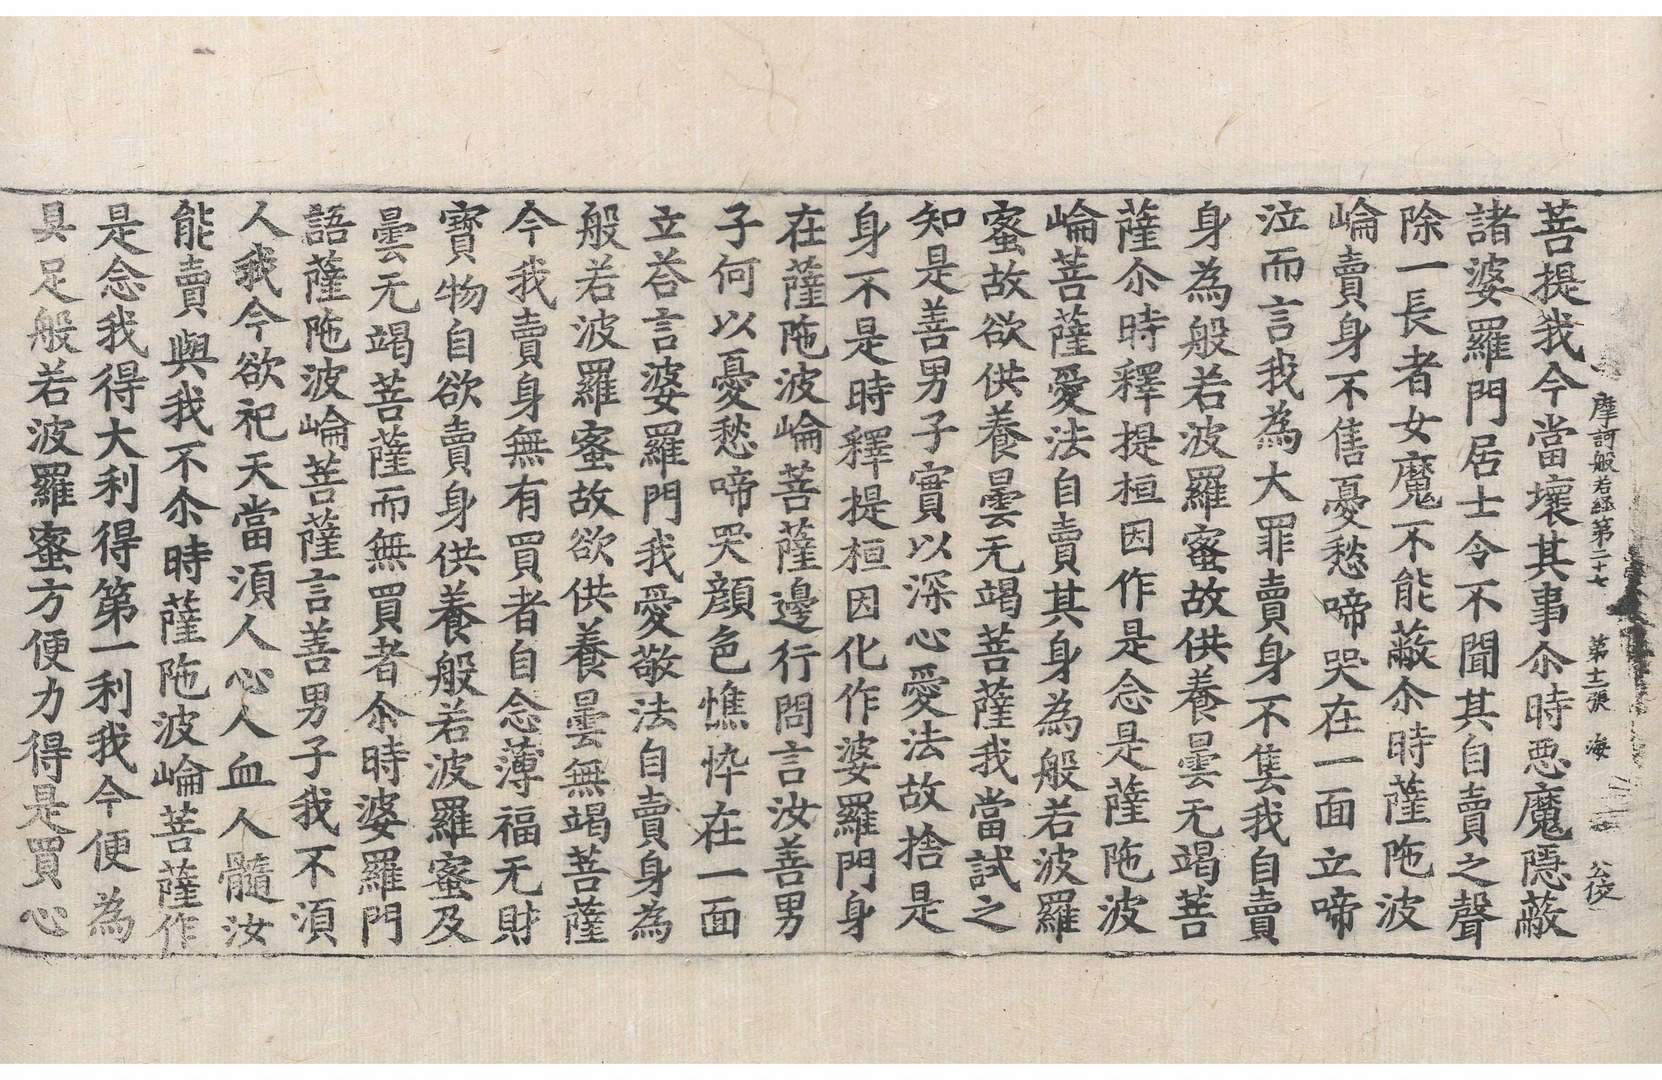 摩訶般若経第二十七 第十二張 海 公俊
菩提我今當壞其事尒時惡魔隱蔽
諸婆羅門居士令不聞其自賣之聲
除一長者女魔不能蔽尒時薩陁波
崘賣身不售憂愁啼哭在一面立啼
泣而言我為大罪賣身不售我自賣
身為般若波羅蜜故供養曇无竭菩
薩尒時釋提桓因作是念是薩陁波
崘菩薩愛法自賣其身為般若波羅
蜜故欲供養曇无竭菩薩我當試之
知是善男子實以深心愛法故捨是
身不是時釋提桓因化作婆羅門身
在薩陁波崘菩薩邊行問言汝善男
子何以憂愁啼哭顔色憔悴在一面
立荅言婆羅門我愛敬法自賣身為
般若波羅蜜故欲供養曇無竭菩薩
今我賣身無有買者自念薄福无財
寳物自欲賣身供養般若波羅蜜及
曇无竭菩薩而無買者尒時婆羅門
語薩陁波崘菩薩言善男子我不須
人我今欲祀天當須人心人血人髓汝
能賣與我不尒時薩陁波崘菩薩作
是念我得大利得第一利我今便為
具足般若波羅蜜方便力得是買心